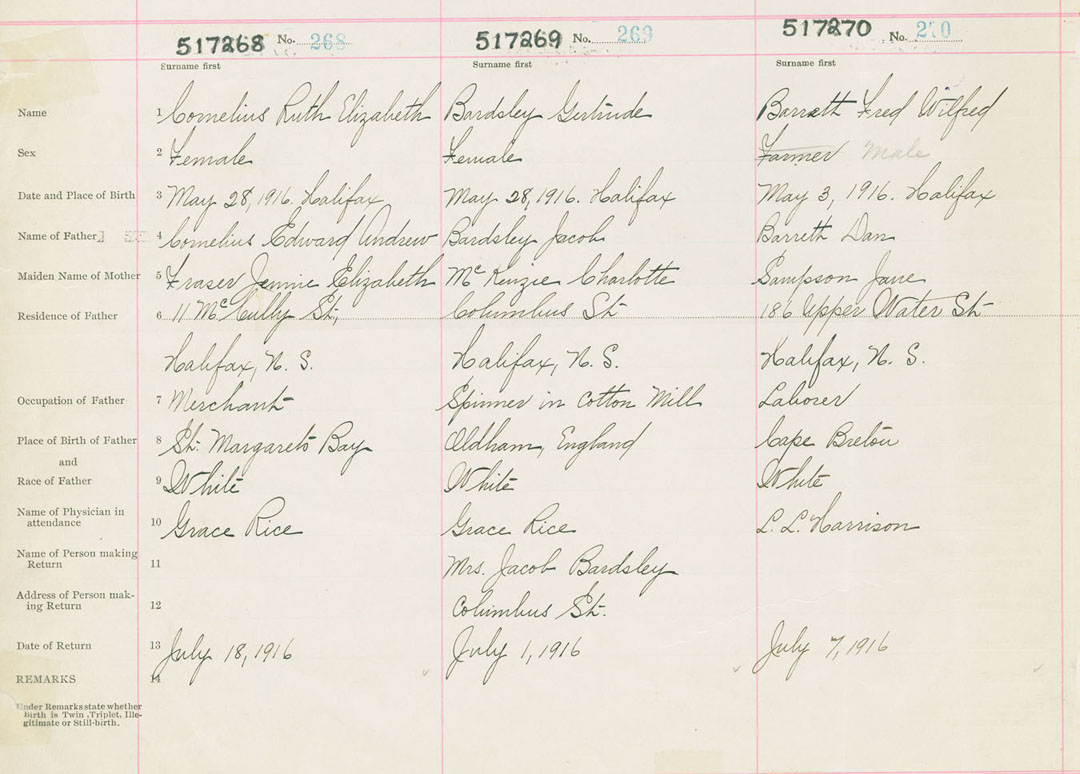 517268 No. 268 517269 No. 269 517270 No. 270
Surname first Surname first Surname first
Name 1 Cornelius Ruth Elizabeth Bardsley Gertrude Barrett Fred Wilfred
Sex 2 Female Female Farmer Male
Date and Place of Birth 3 May 28, 1916. Halifax May 28, 1916. Halifax May 3, 1916. Halifax
Name of Father 4 Cornelius Edward Andrew Bardsley Jacob Barrett Dan
Maiden Name of Mother 5 Fraser Jennie Elizabeth McKenzie Charlotte Sampson Jane
Residence of Father 6 11 McCully St, Columbus St 186 Upper Water St
Halifax, N. S. Halifax, N. S. Halifax, N. S.
Occupation of Father 7 Merchant Spinner in Cotton Mill Laborer
Place of Birth of Father 8 St. Margarets Bay Oldham, England Cape Breton
and
Race of Father 9 White White White
Name of Physician in
attendance 10 Grace Rice Grace Rice L. L. Harrison
Name of Person making
Return 11 Mrs. Jacob Bardsley
Address of Person mak-
ing Return 12 Columbus St.
Date of Return 13 July 18, 1916 July 1, 1916 July 7, 1916
REMARKS 14
Under Remarks state whether
Birth is Twin, Triplet, Ille-
gitimate or Still-birth.